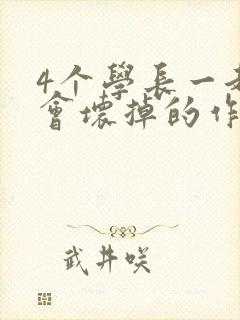 4个學長一起
會壞掉的作
武井咲